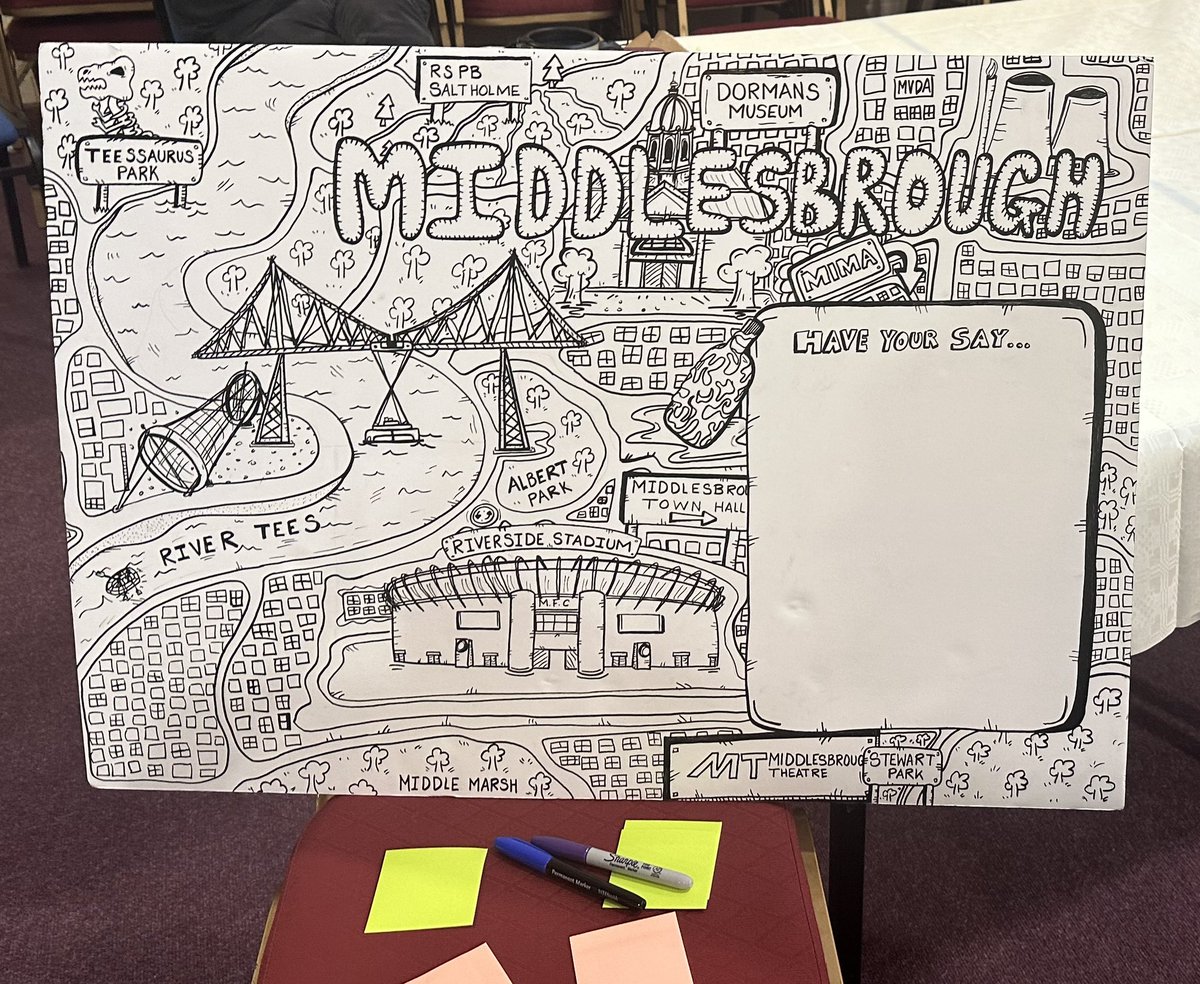 RSPB
SALTHOLME
DORMANS
MUSEUM
MVDA
TEESSAURUS
PARK
MIDDLESBROUGH
MIMA
HAVE YOUR SAY...
ALBERT
PARK
MIDDLESBRO
TOWN HALL
RIVER TEES
RIVERSIDE STADIUM
M.F.C
MT MIDDLESBROUG
THEATRE
STEWART
PARK
MIDDLE MARSH
Sharpie
Permanent Marker